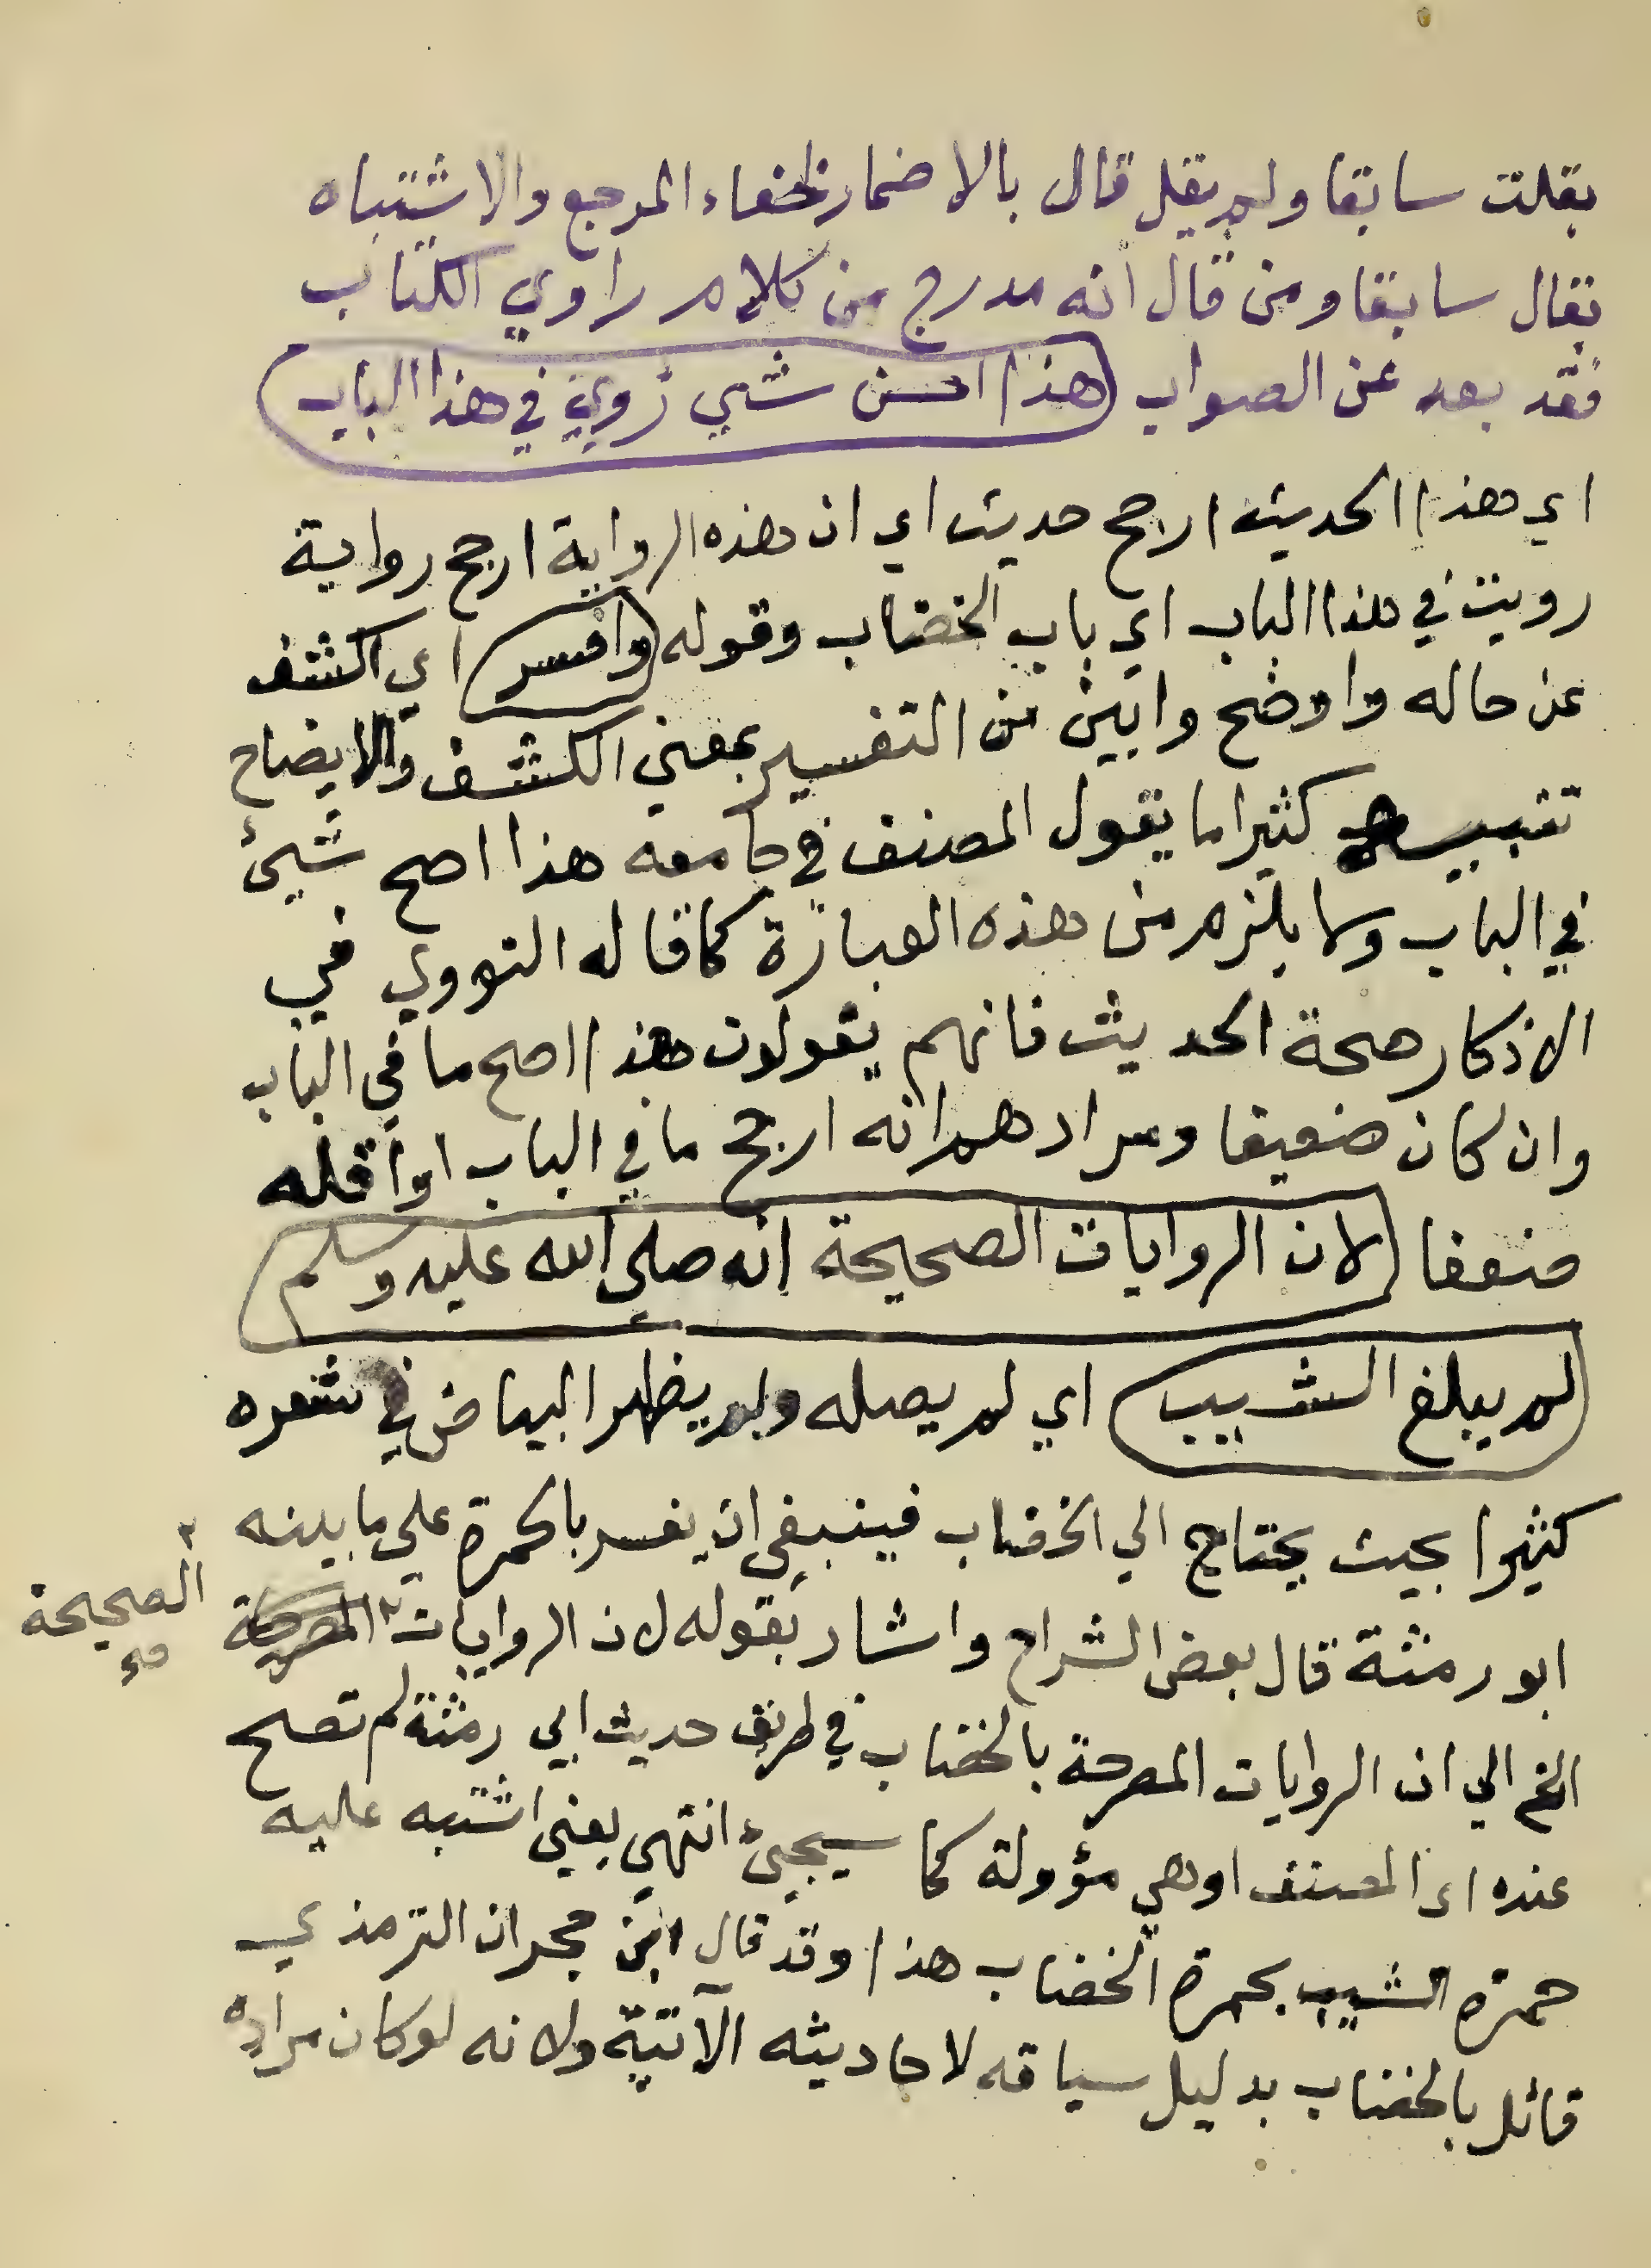 بقلت سابقا ولم يقل قال بالاضمار لخفاء المرجع والاشتباه
بقال سابقا ومن قال انه مدرج من كلام راوي الكتاب
فقد بعد عن الصواب (هذا احسن شي رُوي في هذا الباب)
اي هذا الحديث ارجح حديث اي ان هذه الرواية ارجح رواية
رويت في هذا الباب اي باب الخضاب وقوله (وافسر) اي اكشف
عن حاله واوضح وابين من التفسير بمعني الكشف والايضاح
تنبيه كثيرا ما يقول المصنف في جامعه هذا اصح شيئ
في الباب ولا يلزم من هذه العبارة كما قاله النووي في
الاذكار صحة الحديث فانهم يقولون هذا اصح ما في الباب
وان كان ضعيفا ومرادهم انه ارجح ما في الباب او اقله
ضعفا (لان الروايات الصحيحة انه صلي الله عليه وسلم)
(لم يبلغ الشيب) اي لم يصله ولم يظهر البياض في شعره
كثيرا بحيث يحتاج الي الخضاب فينبغي ان يفسر بالحمرة علي ما بينه
ابو رمثة قال بعض الشراح واشار بقوله لان الروايات ٢ المصرحة
٢ الصحيحة صح
الخ الي ان الروايات المصرحة بالخضاب في طريق حديث ابي رمثة لم تصح
عنده اي المصنف او هي مؤولة كما سيجيئ انتهي يعني اشتبه عليه
حمرة الشيب بحمرة الخضاب هذا وقد قال ابن حجر ان الترمذي
قائل بالخضاب بدليل سياقه لاحاديثه الآتية ولانه لو كان مراده